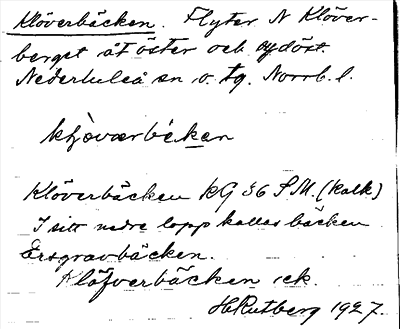 Klöverbäcken. Flyter N Klöver-
berget åt öster och sydöst.
Nederluleå sn o. tg. Norrb. l.
Klöverbäcken KG 36 S.M. (kalk)
I sitt nedre lopp kallas bäcken
Ersgravbäcken.
Klöfverbäcken ick.
H Rutberg 1927.